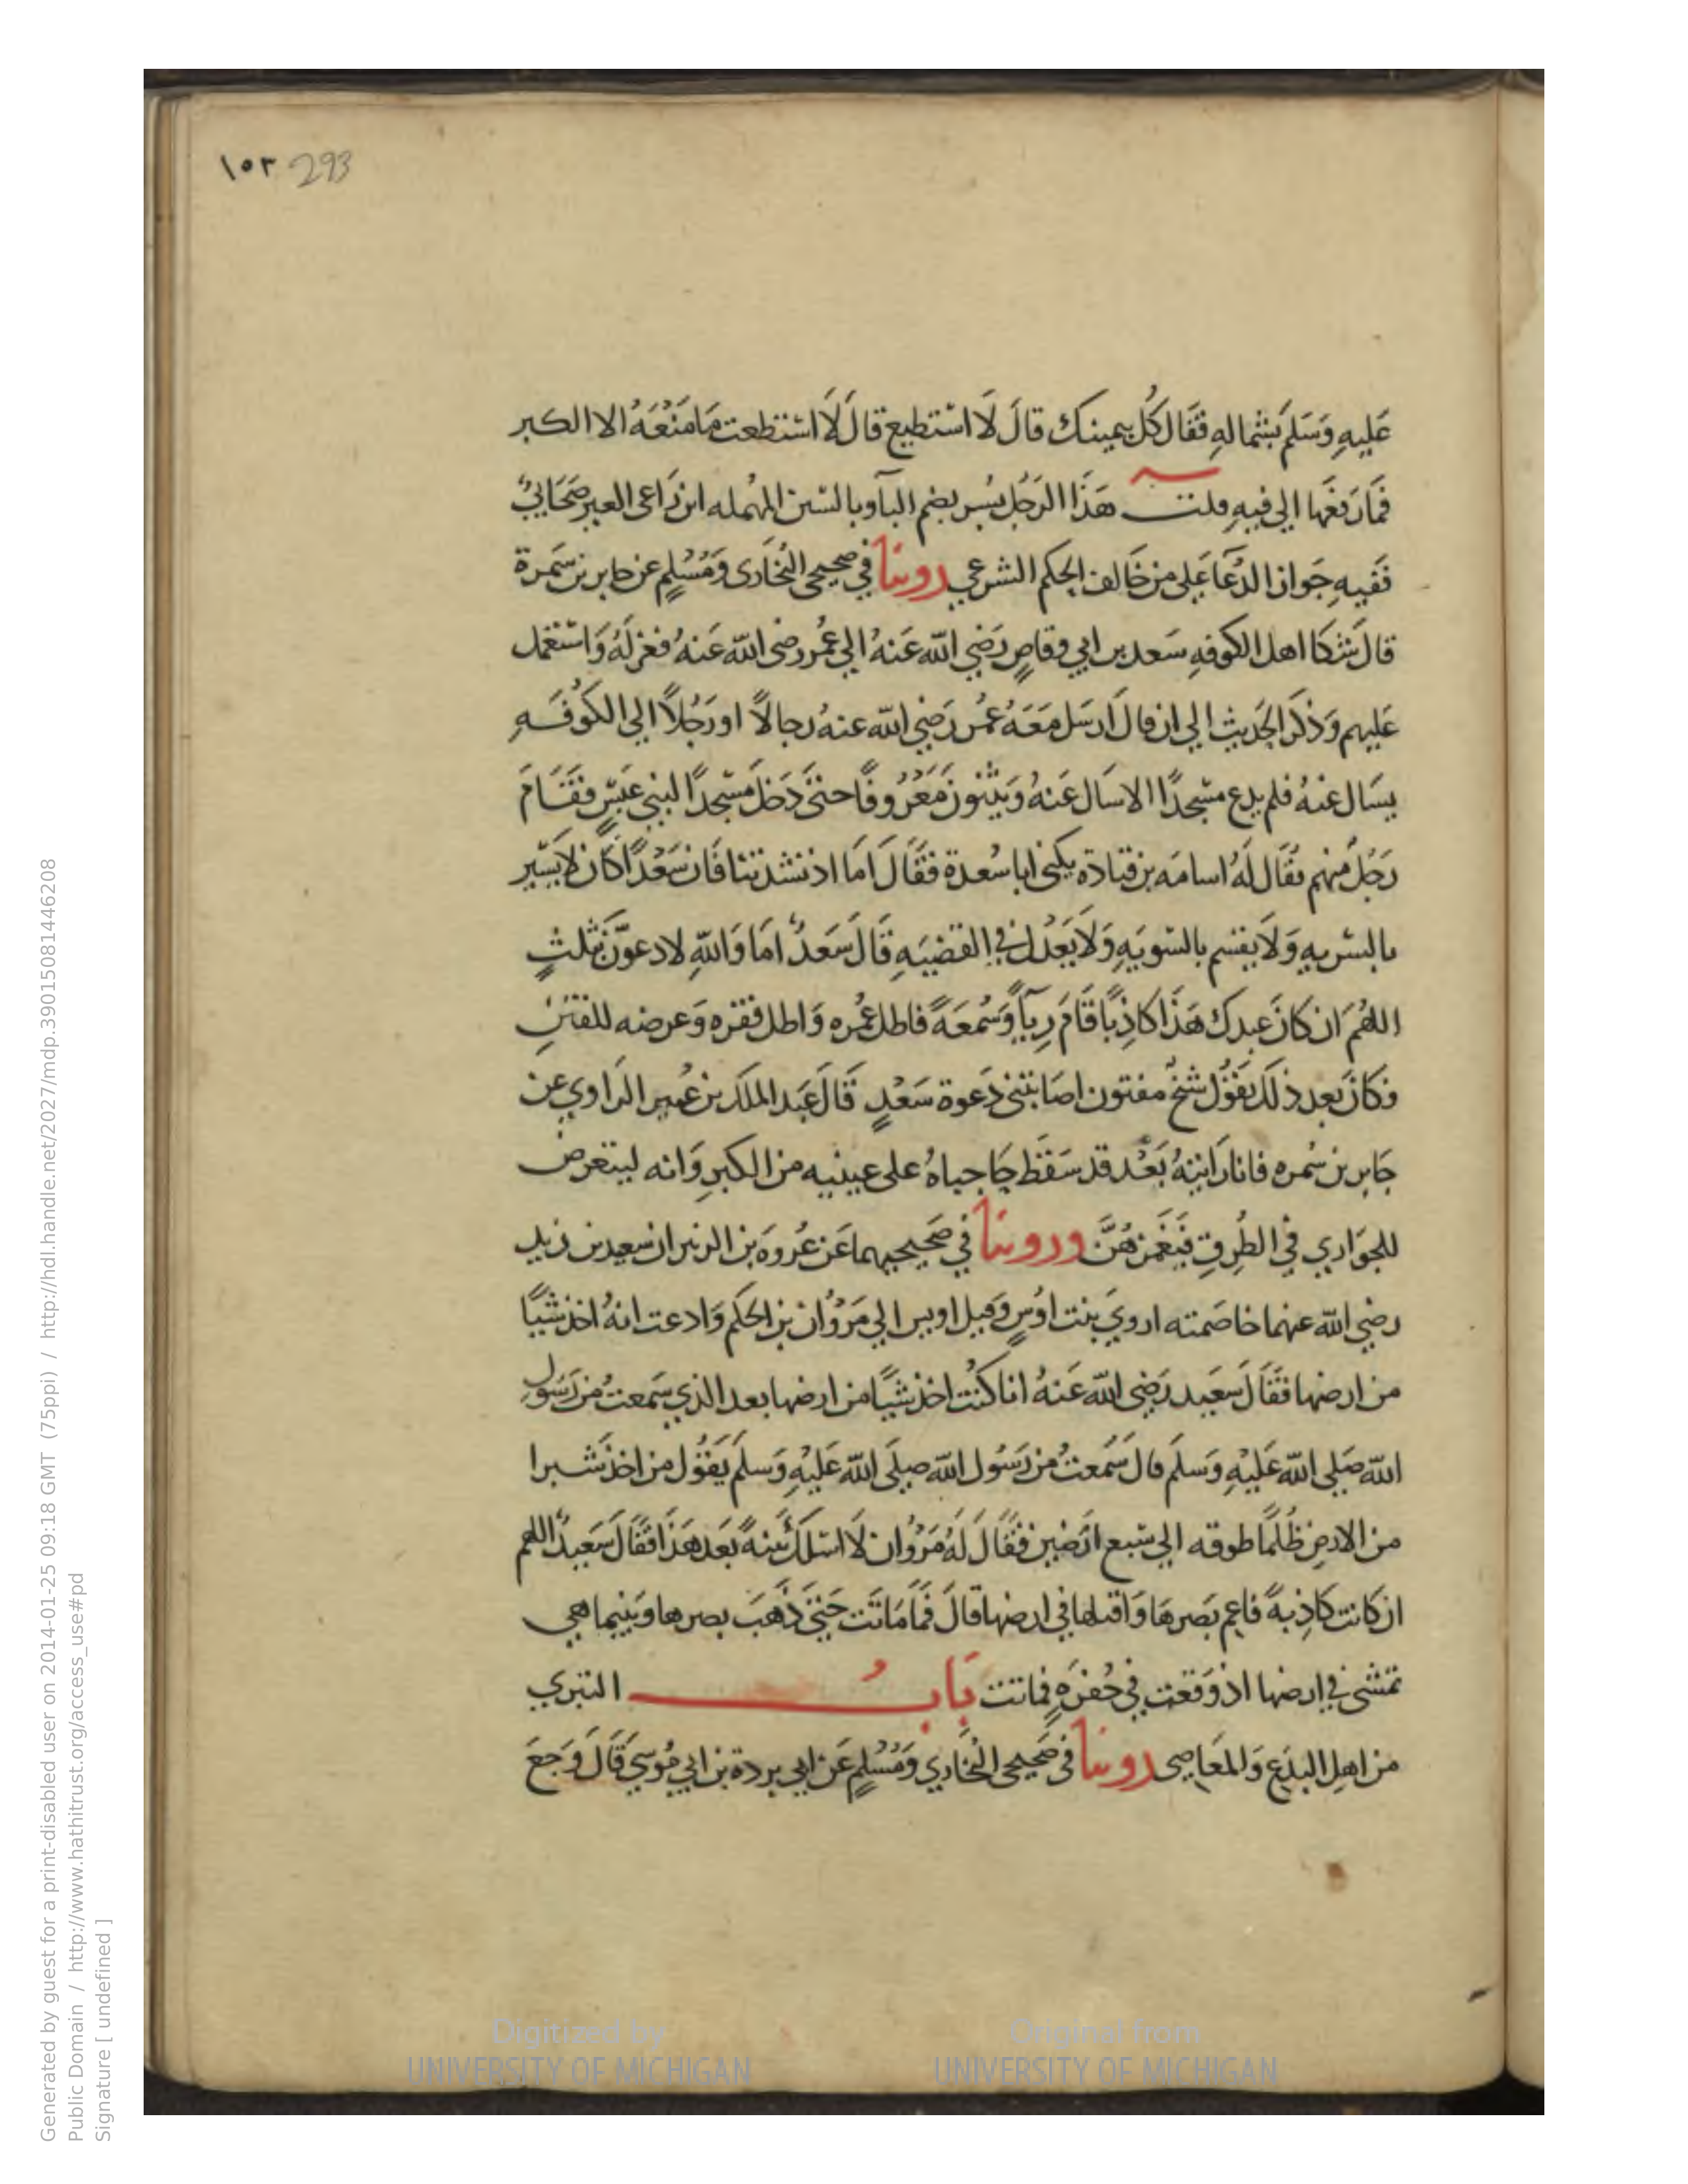 ١٥٣ 293
عَليهِ وَسَلم بَشماله فقَال كُل بيمينك قالَ لَا استطيع قالَ لَا استطعت مَا مَنَعَهُ الا الكبر
فمَا رَفعَها الي فيهِ قلت هَذَا الرَجُل بُسر بضم البآ وبالسّين المهُمله ابن رَاعى العير صَحَابيٌ
فَفيهِ جَواز الدُعَا عَلى من خَالف الحكم الشرعي روينا في صحيحى البُخَارى وَمُسْلمٍ عن جابر بن سَمرة
قال شكا اهل الكوفهِ سَعد بن ابي وقاصٍ رَضي الله عَنهُ الي عُمر رضى الله عَنهُ فعزلَهُ وَاستعمل
عَليهم وَذكرَ الحَديث الي ان قالَ ارسَل مَعَهُ عُمر رَضي الله عنه رجالاً او رَجُلاً الي الكُوفَهِ
يسَال عنهُ فلم يدع مسّجدًا الا سَال عَنهُ وَيثنون مَعرُوفًا حتىَّ دَخل مَسّجدًا لبني عَبسٍ فقَامَ
رَجُل منهم يُقَال لَهُ اسامَه بن قتادَة يكنى ابا سُعدة فقَالَ اما اذ نشدتنا فَان سَعدًا كان لا يَسير
بالسّريهِ وَلَا يقسم بالسّويَهِ وَلَا يَعدل في القضيَهِ قَالَ سَعدٌ امَا وَاللهِ لادعوَّن بثلثٍ
اللهُم ان كانَ عبدك هَذَا كاذِبًا قَامَ رِياً وَسُمعَةً فاطل عُمره وَاطل فقره وَعرضه للفتنِ
فكانَ بَعد ذلكَ يَقُول شيخٌ مفتون اصَابتنى دَعوة سَعْدٍ قَالَ عَبد الملك بن عُمير الرَاوي عن
جَابر بن سُمره فانا رَايتهُ بَعْد قد سَقط حَاجباهُ على عينيه من الكبرِ وَانه ليتعرض
للجوَاري في الطُرقِ فيَغمزهُنَّ وروينا في صَحيحيهما عَن عُروَة بن الزبير ان سَعيد بن زيد
رضي الله عنهما خاصَمته اروي بنت اوُسٍ وَقيل اويس الي مَرْوُان بن الحكم وَادعت انهُ اخذ شيًا
من ارضها فقَالَ سَعيد رَضي الله عَنهُ انا كنُت اخذ شيًا من ارضها بعد الذي سَمعتُ من رَسُول
الله صَلى الله عَليْهِ وَسلمَ قالَ سَمعتُ من رَسُول الله صلَى الله عَليْهِ وَسلمَ يَقُول من اخذ شبرا
من الارض ظُلمًا طوقه الي سَبع ارَضين فقَالَ لَهُ مَرْوُان لَا اسَلك بَينهً بَعد هَذا فقَالَ سَعيدٌ اللهم
ان كانت كاذبةً فاعم بَصرهَا وَاقتلها في ارضها قالَ فمَا مَاتَت حَتىَّ ذَهَبَ بصرها وَبينما هي
تمشى في ارضها اذ وَقعت في حُفرَهٍ فماتت بَابُ التبري
من اهل البدَع وَالمعَاصى روينا في صَحيحى البُخَاري وَمُسْلمٍ عَن ابي بردة بن ابي مُوسيَ قَالَ وَجعَ
Generated by guest for a print-disabled user on 2014-01-25 09:18 GMT (75ppi) / http://hdl.handle.net/2027/mdp.39015081446208
Public Domain / http://www.hathitrust.org/access_use#pd
Signature [ undefined ]
Digitized by
UNIVERSITY OF MICHIGAN
Original from
UNIVERSITY OF MICHIGAN